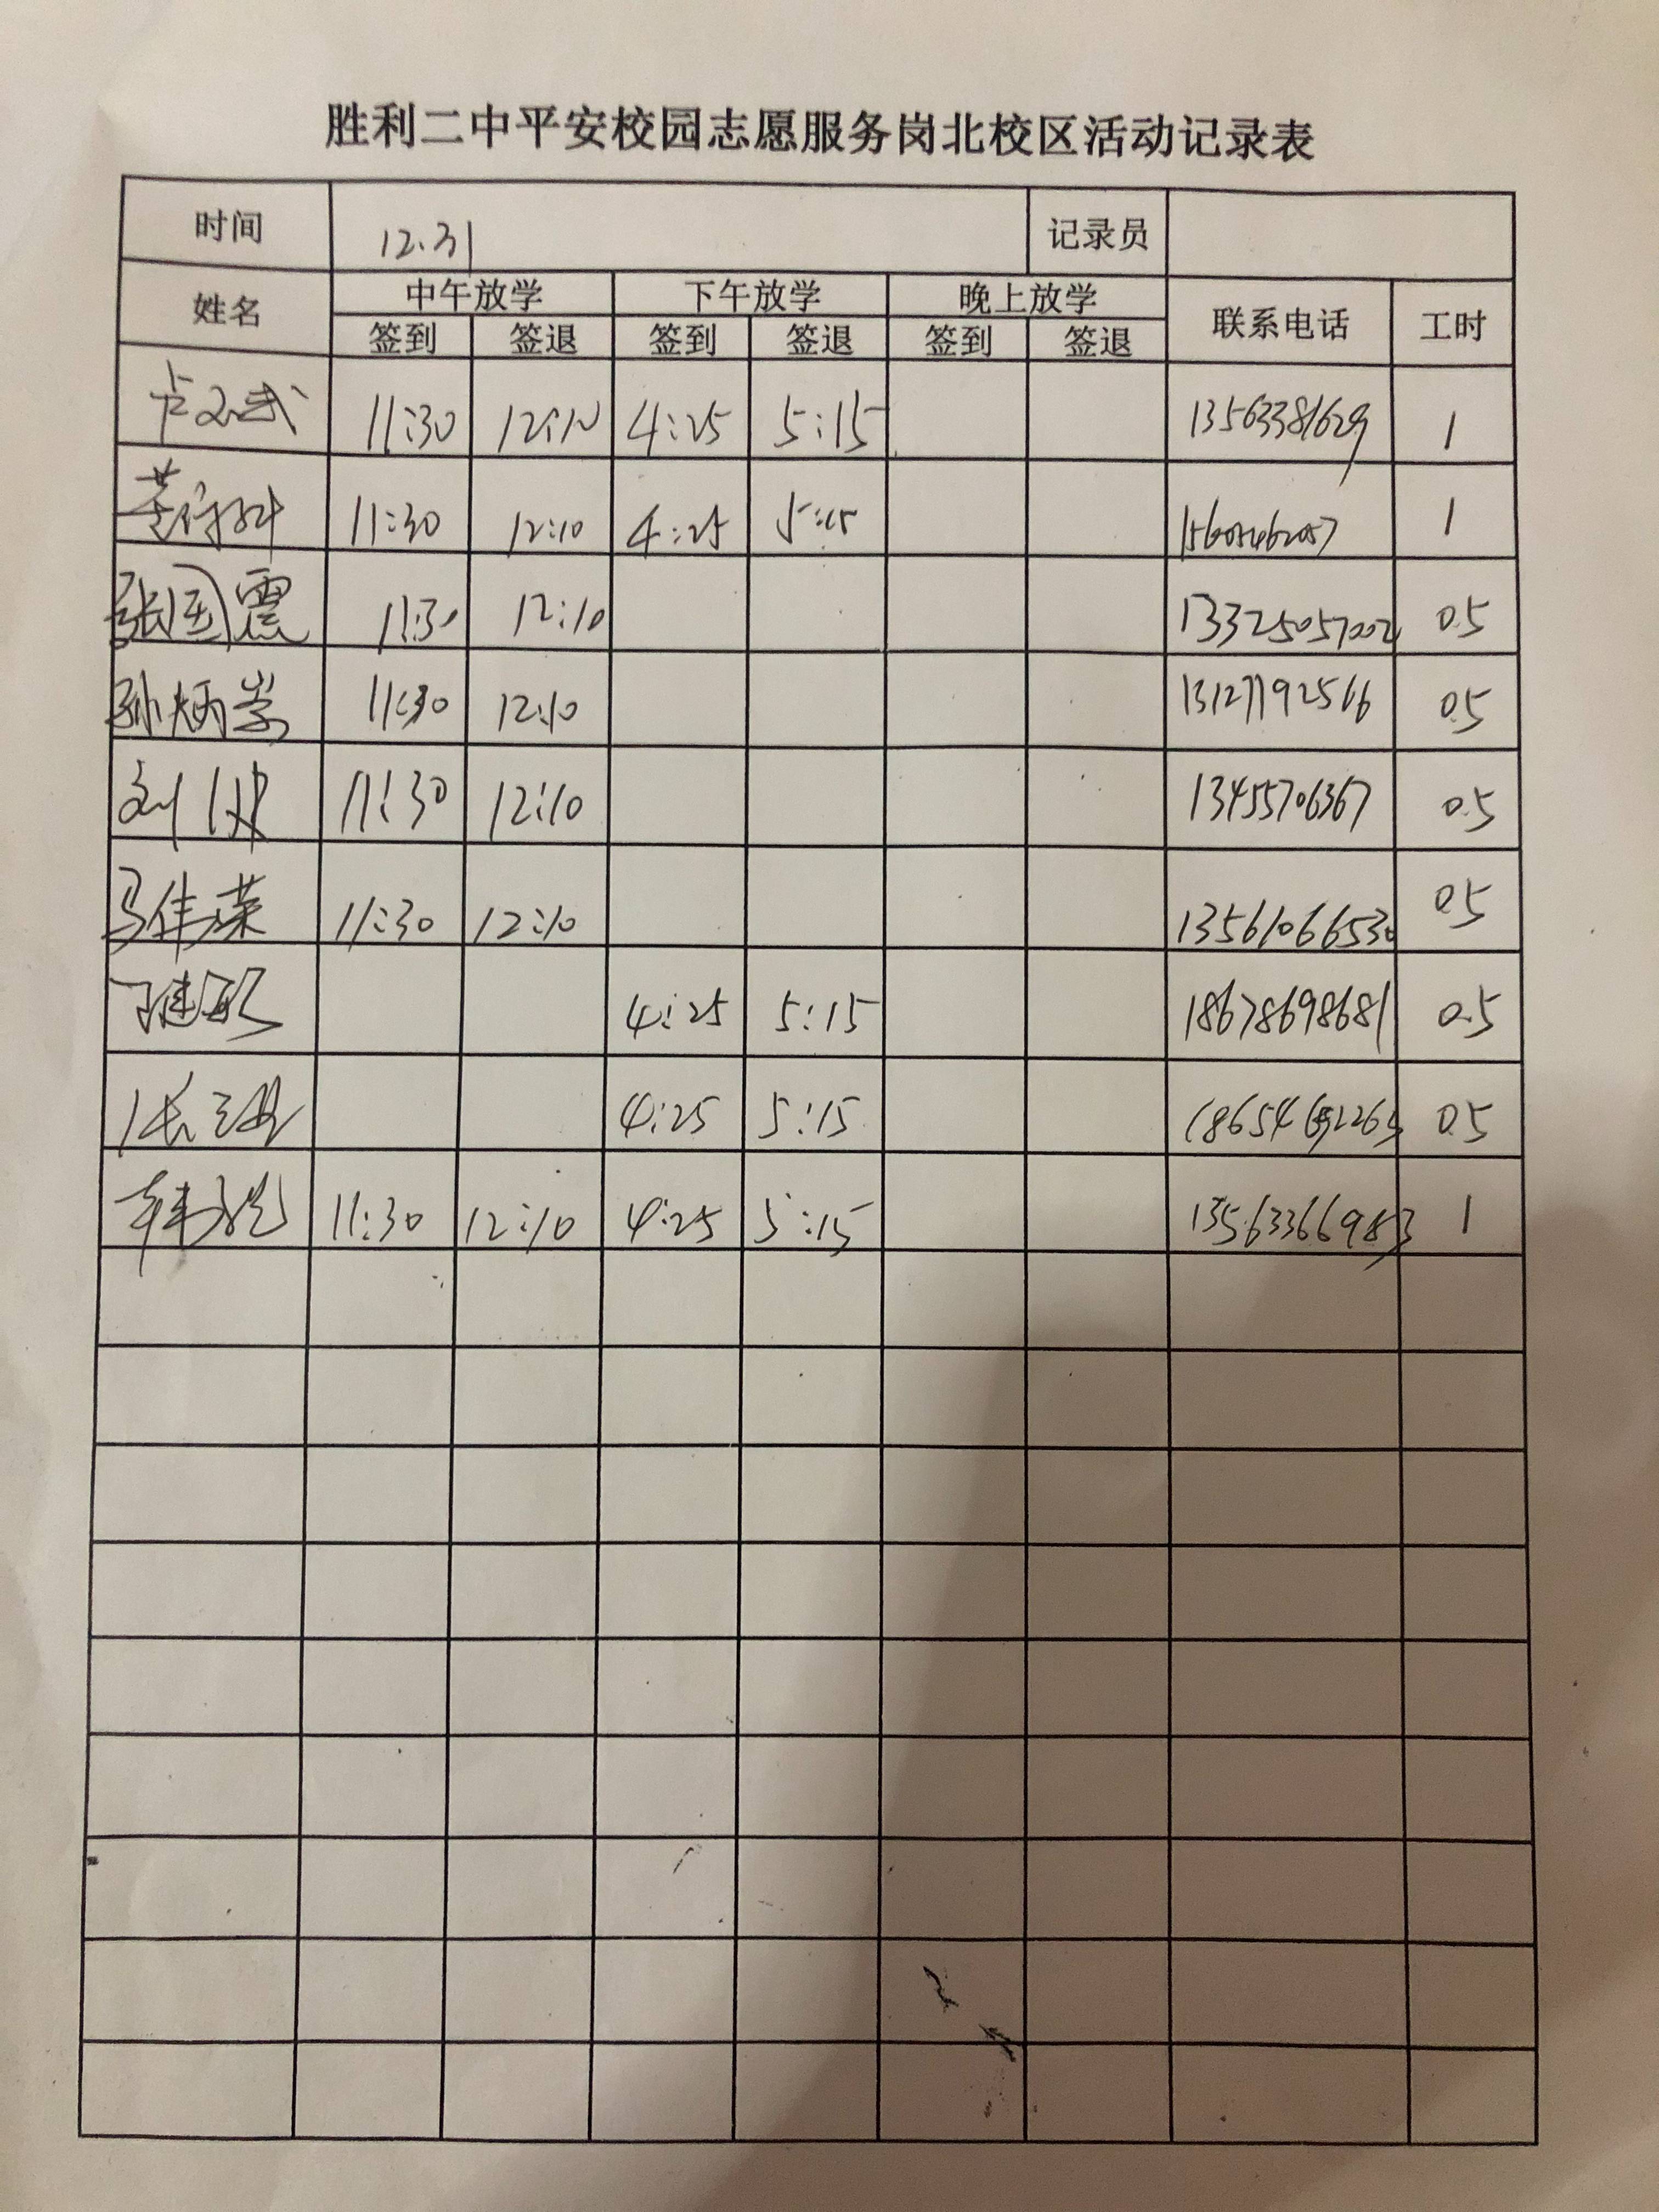 胜利二中平安校园志愿服务岗北校区活动记录表
时间 12.31 记录员
姓名 中午放学 下午放学 晚上放学 联系电话 工时
签到 签退 签到 签退 签到 签退
11:30 12:10 4:25 5:15 13563381629 1
11:30 12:10 4:25 5:15 15605462057 1
张国震 11:30 12:10 13325057002 0.5
孙炳崇 11:30 12:10 13127192566 0.5
刘 11:30 12:10 13455706367 0.5
马伟荣 11:30 12:10 13561066530 0.5
4:25 5:15 18678698681 0.5
4:25 5:15 0.5
11:30 12:10 4:25 5:15 13563366983 1